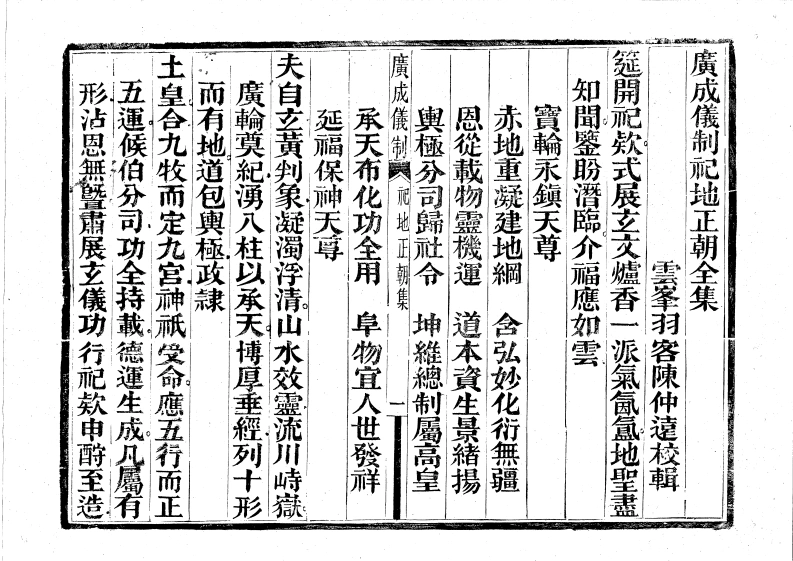 廣成儀制祀地正朝全集
雲峯羽客陳仲遠校輯
筵開祀欵式展玄文爐香一派氣氤氳地聖盡
知聞鑒盼潛臨介福應如雲
寶輪永鎮天尊
赤地重凝建地綱 含弘妙化衍無疆
恩從載物靈機運 道本資生景緒揚
輿極分司歸社令 坤維總制屬高皇
廣成儀制 祀地正朝集 一
承天布化功全用 阜物宜人世發祥
延福保神天尊
夫自玄黃判象凝濁浮清山水效靈流川峙嶽
廣輪莫紀湧八柱以承天博厚垂經列十形
而有地道包輿極政隸
土皇合九牧而定九宮神祇受命應五行而正
五運候伯分司功全持載德運生成凡屬有
形沾恩無曁肅展玄儀功行祀欵申酧至造